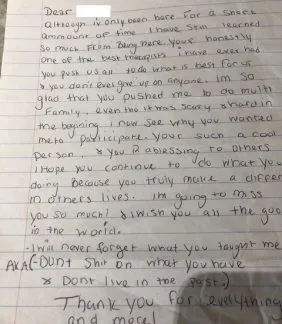 Dear
Although iv only been here for a short
ammount of time I have still learned
so much from being here. your honestly
one of the best therapists i have ever had
you push us all to do what is best for us
& you don't ever give up on anyone. Im so
glad that you pushed me to do multi
Family, even tho it was scary & hard in
the begining i now see why you wanted
me to participate. your such a cool
person, & you r a blessing to others
I Hope you continue to do what you
doing because you truly make a differ
in others lives. im going to miss
you so much! & i wish you all the goo
in the world.
-I will never forget what you taught me
AKA(-Dont Shit on what you have
& Dont live in the past.)
Thank you for everything
and more!